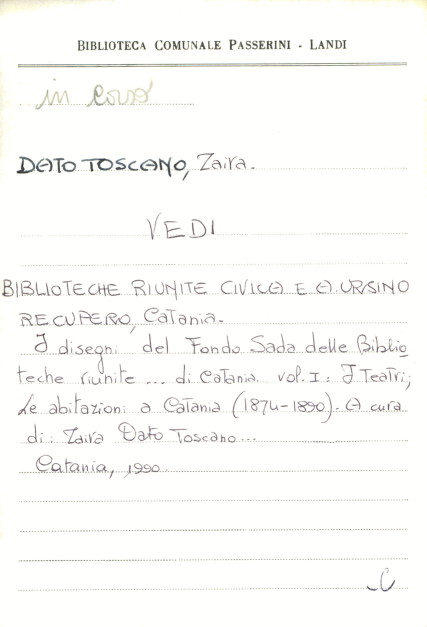 BIBLIOTECA COMUNALE PASSERINI - LANDI
in corso
DATO TOSCANO, Zaira.
VEDI
BIBLIOTECHE RIUNITE CIVICA E A. URSINO
RECUPERO, Catania.
I disegni del Fondo Sada delle Biblio
teche riunite ... di Catania. vol. I: I Teatri;
Le abitazioni a Catania (1874-1890). A cura
di: Zaira Dato Toscano...
Catania, 1990.